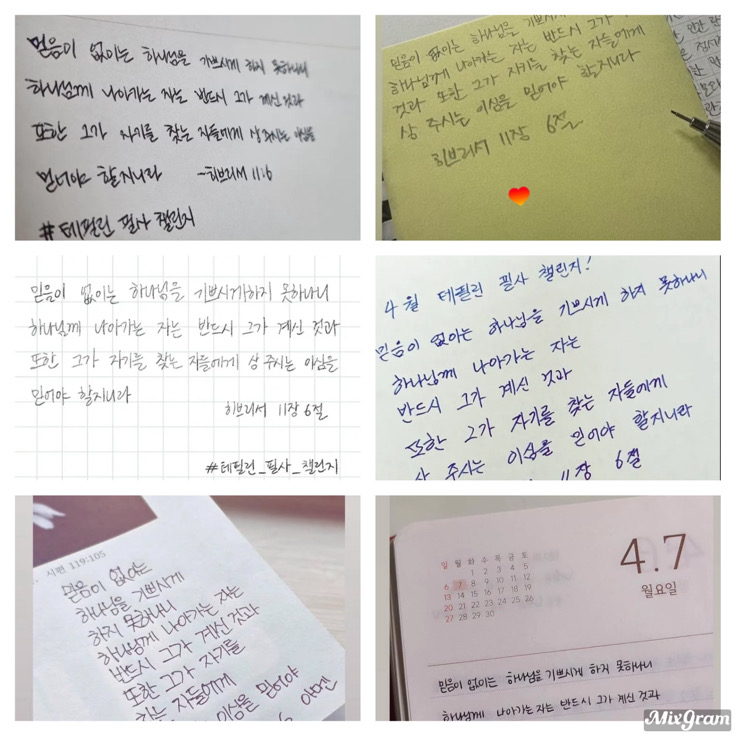 믿음이 없이는 하나님을 기쁘시게 하지 못하나니
하나님께 나아가는 자는 반드시 그가 계신 것과
또한 그가 자기를 찾는 자들에게 상 주시는 이심을
믿어야 할지니라 ~히브리서 11:6
#테필린 필사 챌린지
믿음이 없이는 하나님을 기쁘시게
하나님께 나아가는 자는 반드시 그가 계신
것과 또한 그가 자기를 찾는 자들에게
상 주시는 이심을 믿어야 할지니라
히브리서 11장 6절
믿음이 없이는 하나님을 기쁘시게하지 못하나니
하나님께 나아가는 자는 반드시 그가 계신 것과
또한 그가 자기를 찾는 자들에게 상 주시는 이심을
믿어야 할지니라
히브리서 11장 6절
#테필린_필사_챌린지
4월 테필린 필사 챌린지!
믿음이 없이는 하나님을 기쁘시게 하지 못하나니
하나님께 나아가는 자는
반드시 그가 계신 것과
또한 그가 자기를 찾는 자들에게
상 주시는 이심을 믿어야 할지니라
11장 6절
시편 119:105
믿음이 없이는
하나님을 기쁘시게
하지 못하나니
하나님께 나아가는 자는
반드시 그가 계신 것과
또한 그가 자기를
찾는 자들에게
이심을 믿어야
아멘
4.7
월요일
일 월 화 수 목 금 토
1 2 3 4 5
6 7 8 9 10 11 12
13 14 15 16 17 18 19
20 21 22 23 24 25 26
27 28 29 30
믿음이 없이는 하나님을 기쁘시게 하지 못하나니
하나님께 나아가는 자는 반드시 그가 계신 것과
MixGram